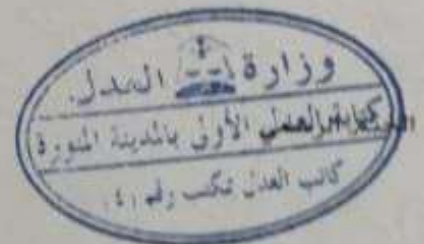 وزارة العدل
كتابة العدل الأولى بالمدينة المنورة
كاتب العدل مكتب رقم (٤)